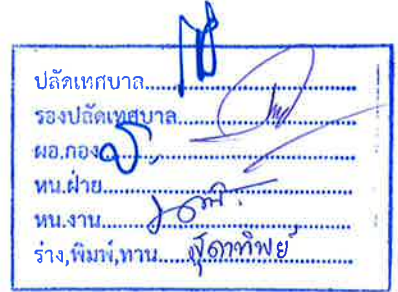 ปลัดเทศบาล..........
รองปลัดเทศบาล..........
ผอ.กอง..........
หน.ฝ่าย..........
หน.งาน..........
ร่าง,พิมพ์,ทาน.....สุดาทิพย์.....